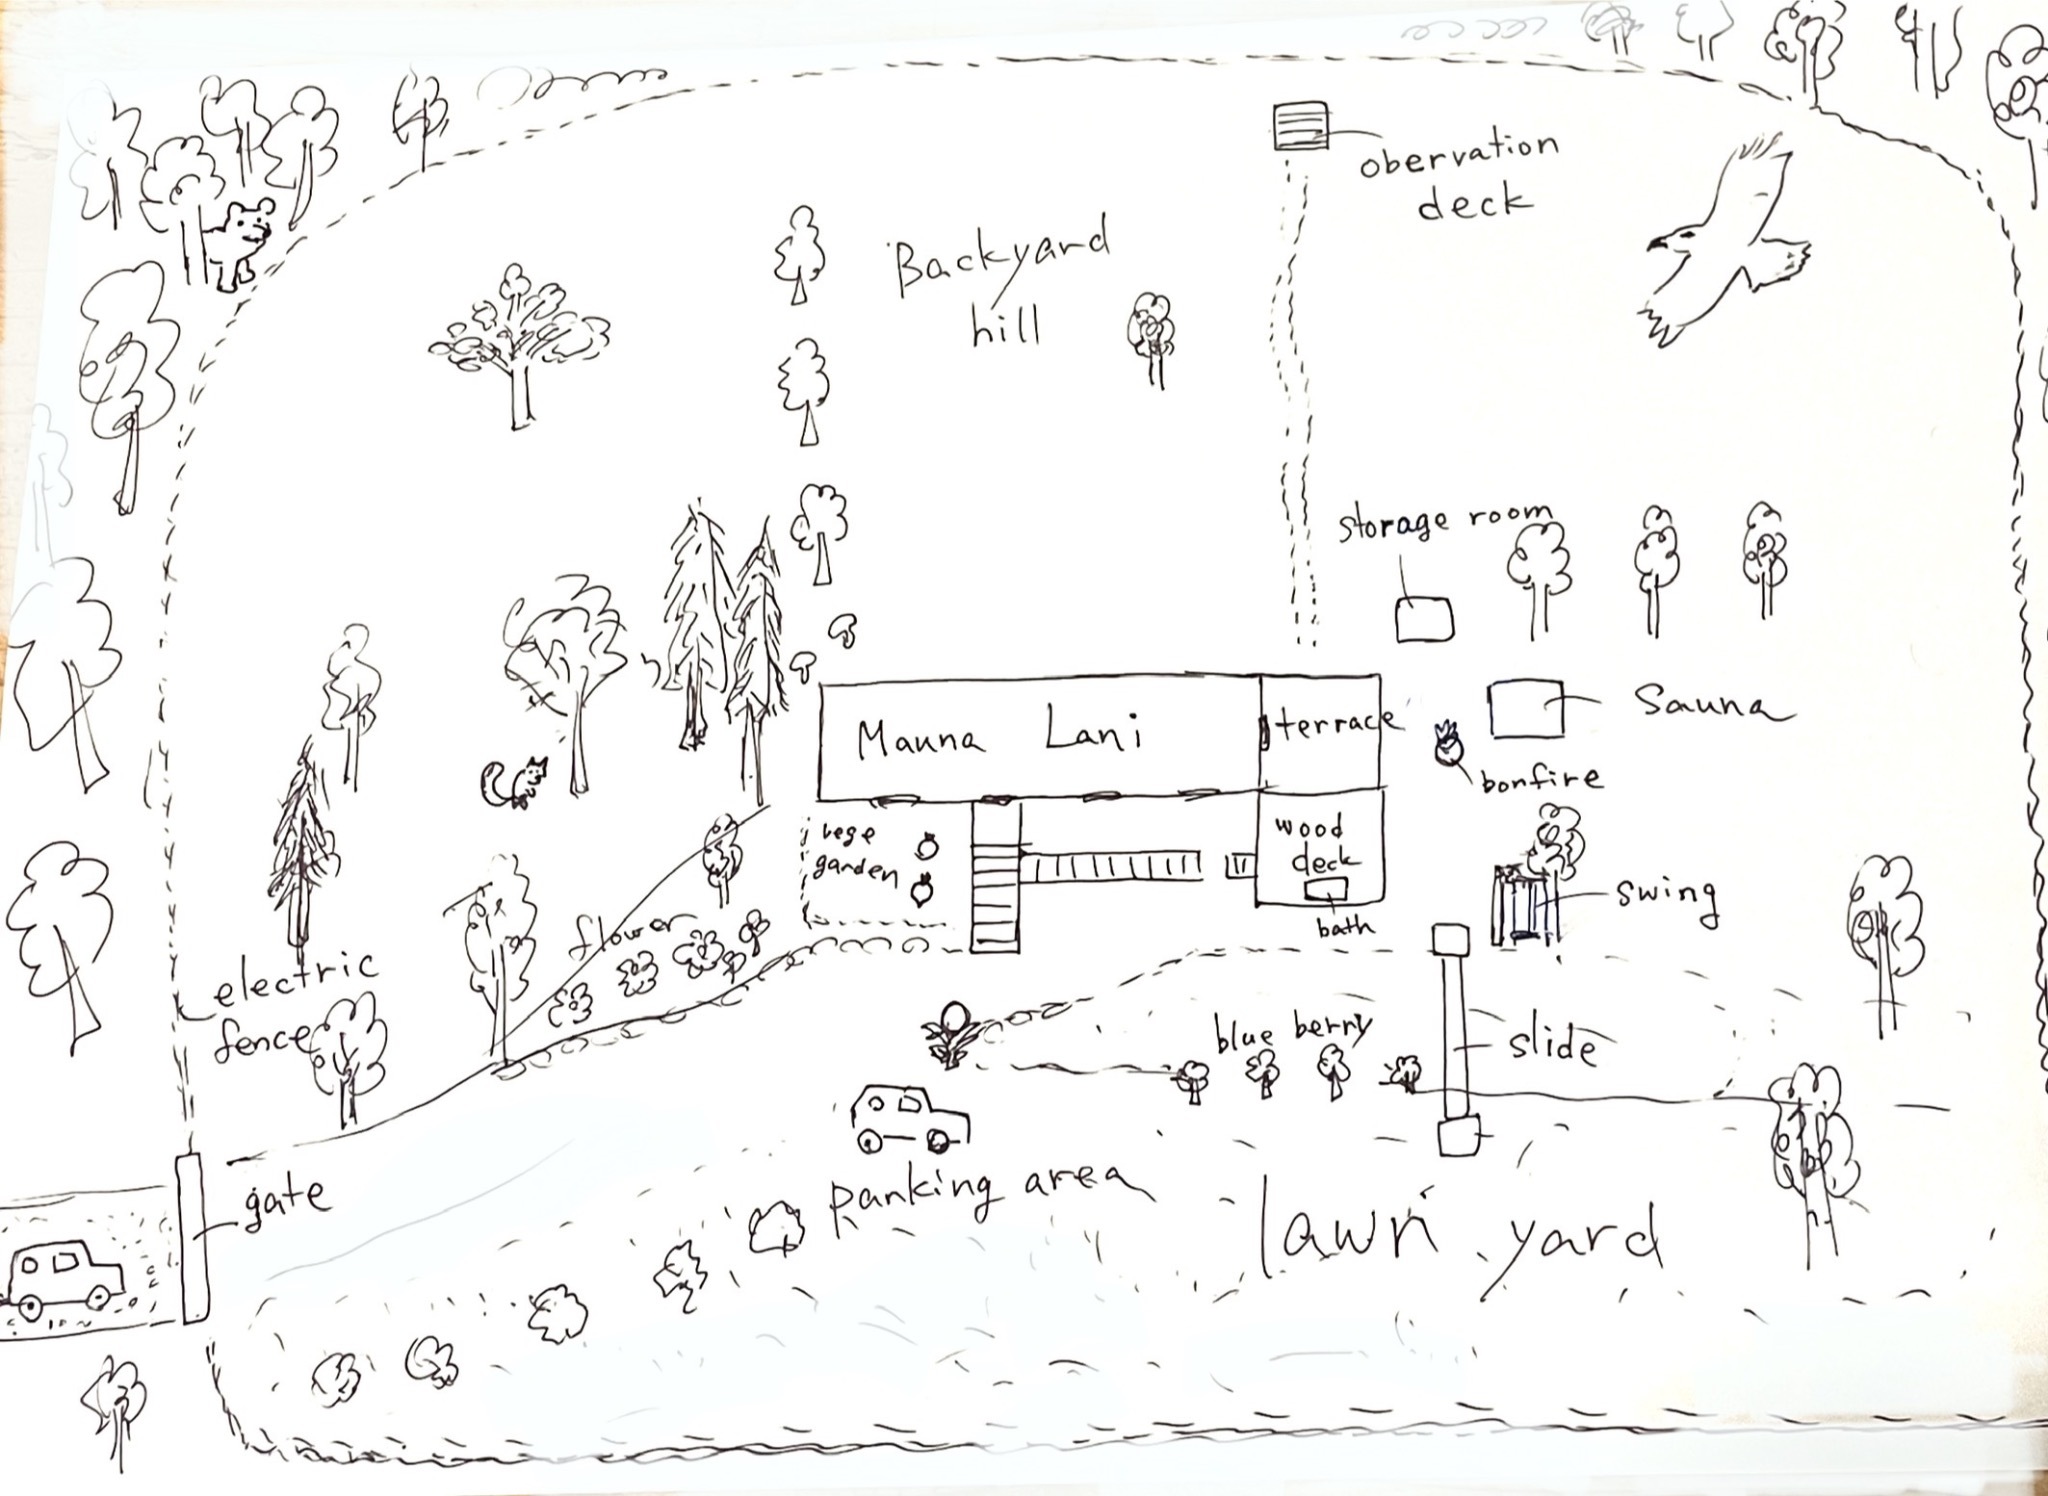 obervation
deck
Backyard
hill
storage room
Sauna
Mauna Lani
terrace
bonfire
vege
garden
wood
deck
bath
swing
flower
electric
fence
blue berry
slide
gate
Parking area
lawn yard